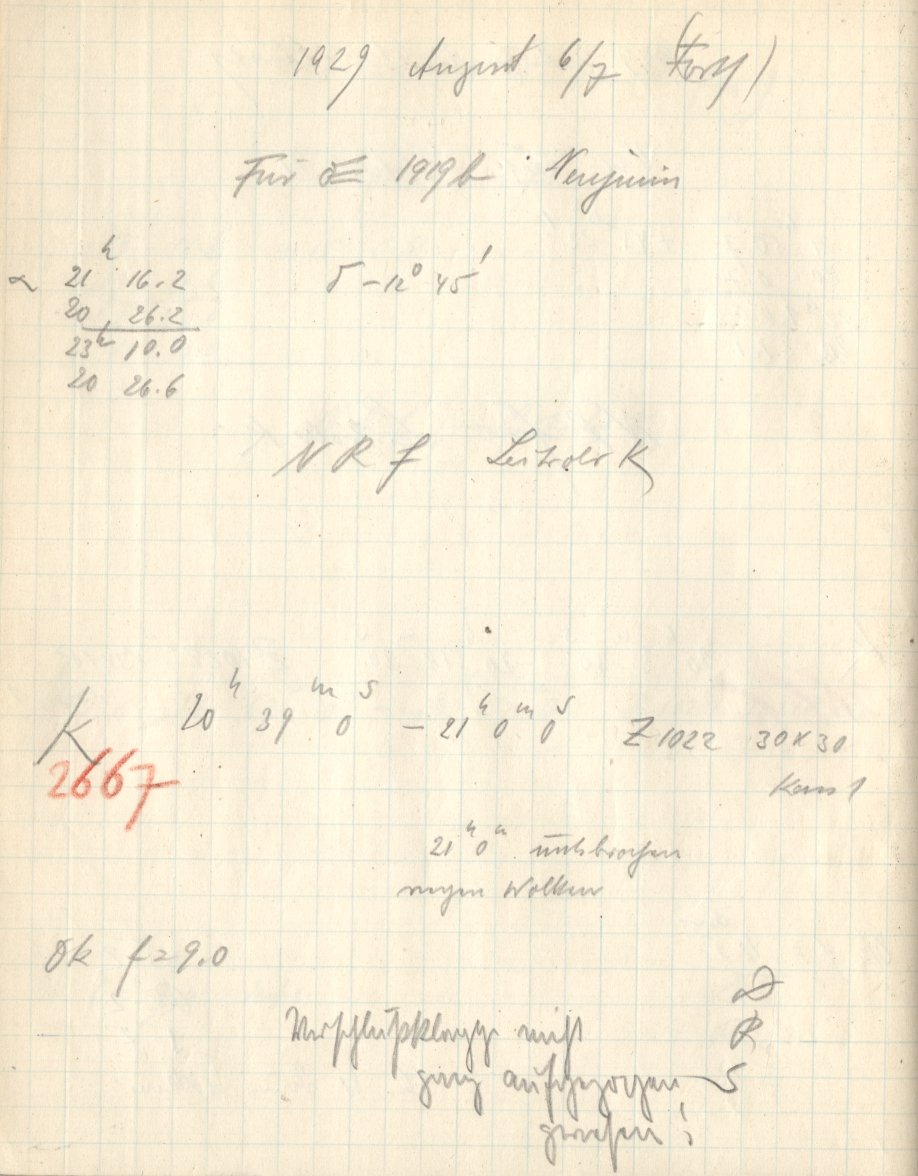 1929 August 6/7 (Forts)
Für 1919b Neujmin
α 21h 16.2 δ -12° 45'
20 26.2
23h 10.0
20 26.6
N R f Leitrohr K
K 20h 39m 0s - 21h 0m 0s Z 1022 30x30
2667
21h 0m unterbrochen
wegen Wolken
Ok f=9.0
Verschlußklappe nicht
R
ganz aufgezogen S
gewesen!